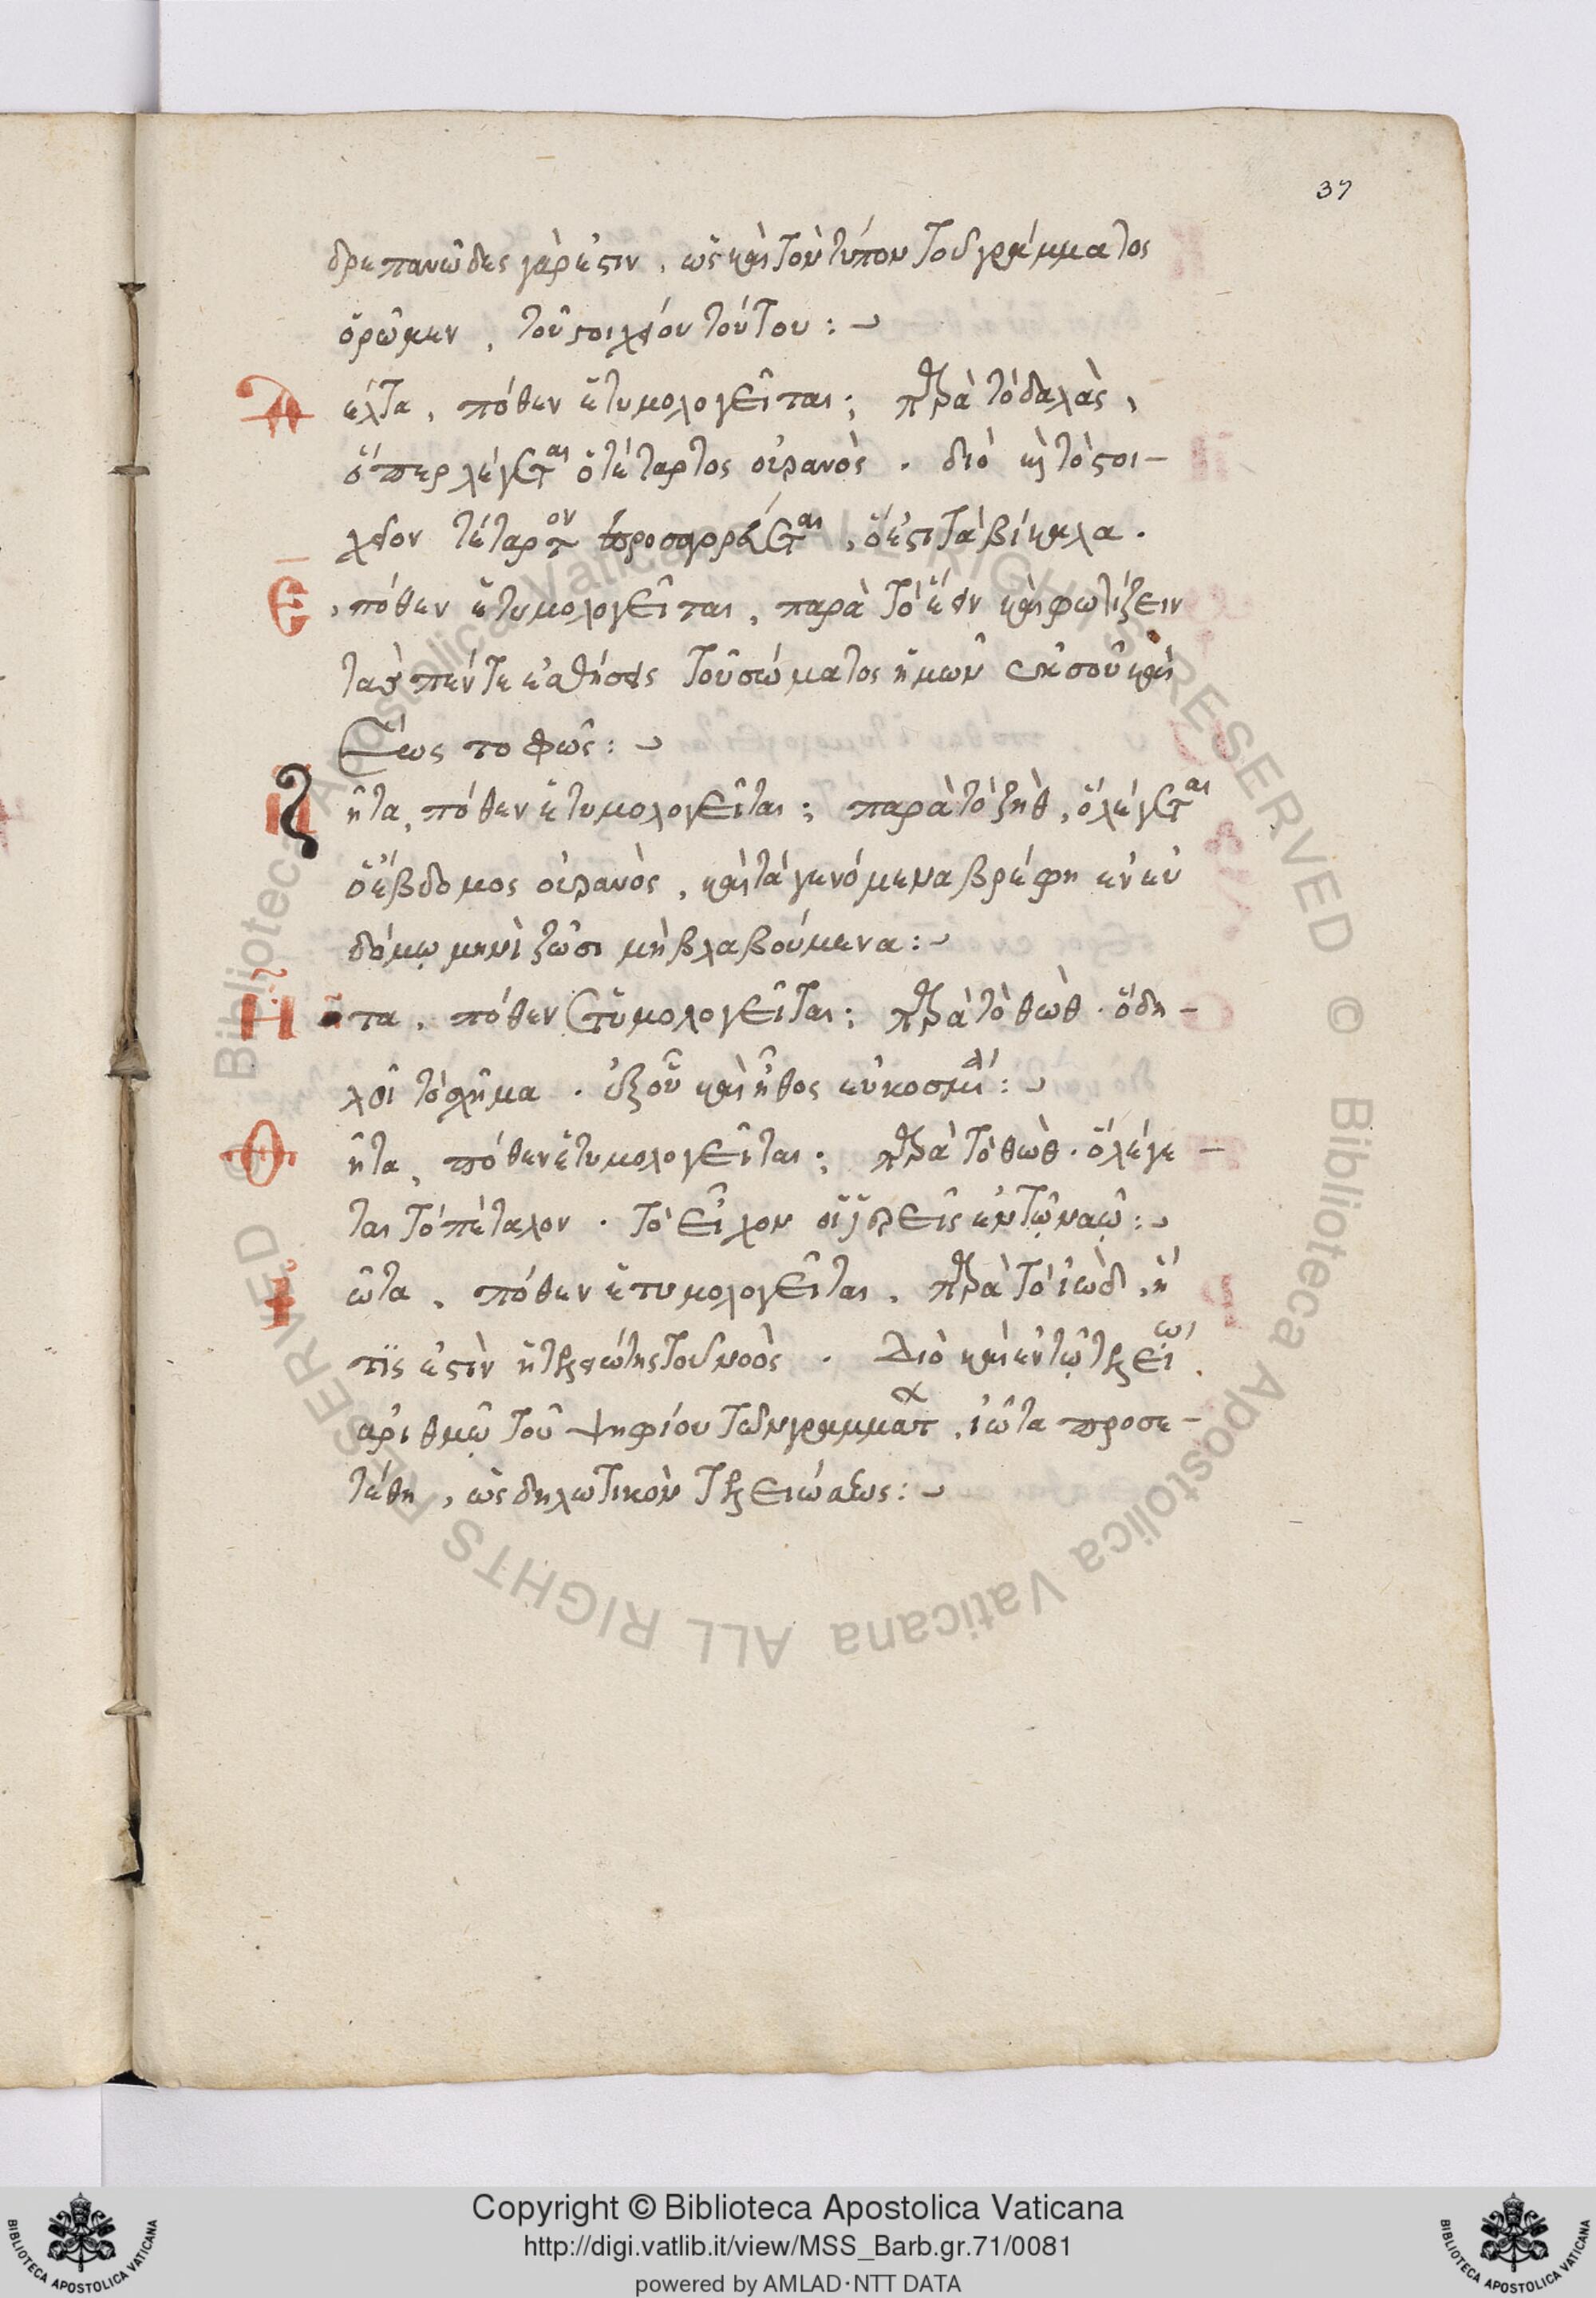 37
δρεπανῶδες γάρ ἐστιν, ὡς καὶ τὸν τύπον τοῦ γράμματος
ὁρῶμεν, τοῦ στοιχείου τούτου:
Δέλτα, πόθεν ἐτυμολογεῖται; παρὰ τὸ δαλὰς,
ὅπερ λέγεται ὁ τέταρτος οὐρανὸς. διὸ καὶ τὸ στοι-
χεῖον τέταρτον προσαγορεύεται, ὅ ἐστι τὰ βίκελα.
Ε, πόθεν ἐτυμολογεῖται, παρὰ τὸ ἕειν καὶ φωτίζειν
τὰς πέντε αἰσθήσεις τοῦ σώματος ἡμῶν καὶ
ἕως το φῶς:
Ζῆτα, πόθεν ἐτυμολογεῖται; παρὰ τὸ ζὴθ, ὃ λέγεται
ὁ ἕβδομος οὐρανὸς, καὶ τὰ γενόμενα βρέφη ἐν ἑυ
δόμῳ μηνὶ ζῶσι μὴ βλαβούμενα:
Ητα, πόθεν ἐτυμολογεῖται; παρὰ τὸ θὼθ. ὃ δη-
λοῖ τὸ σχῆμα. ἐξ οὗ καὶ ἦθος εὐκοσμεῖ:
Θῆτα, πόθεν ἐτυμολογεῖται; παρὰ τὸ θὼθ. ὃ λέγε-
ται τὸ πέταλον. τὸ εἶχον οἱ ἱερεῖς ἐν τῷ ναῷ:
Ιῶτα, πόθεν ἐτυμολογεῖται, παρὰ τὸ ἰὼδ, ἥ
τις ἐστὶν ἡ τελειότης τοῦ νοὸς. Διὸ καὶ ἐν τῷ τελείῳ
ἀριθμῷ τοῦ ψηφίου τῶν γραμμάτων, ἰῶτα προσε-
τέθη, ὡς δηλωτικὸν τελειώσεως:
Copyright © Biblioteca Apostolica Vaticana
http://digi.vatlib.it/view/MSS_Barb.gr.71/0081
powered by AMLAD·NTT DATA
BIBLIOTECA APOSTOLICA VATICANA
BIBLIOTECA APOSTOLICA VATICANA
© Biblioteca Apostolica Vaticana ALL RIGHTS RESERVED © Biblioteca Apostolica Vaticana ALL RIGHTS RESERVED